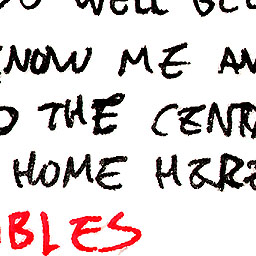 WELL BE
KNOW ME AN
O THE CENTR
HOME HERE
BLES